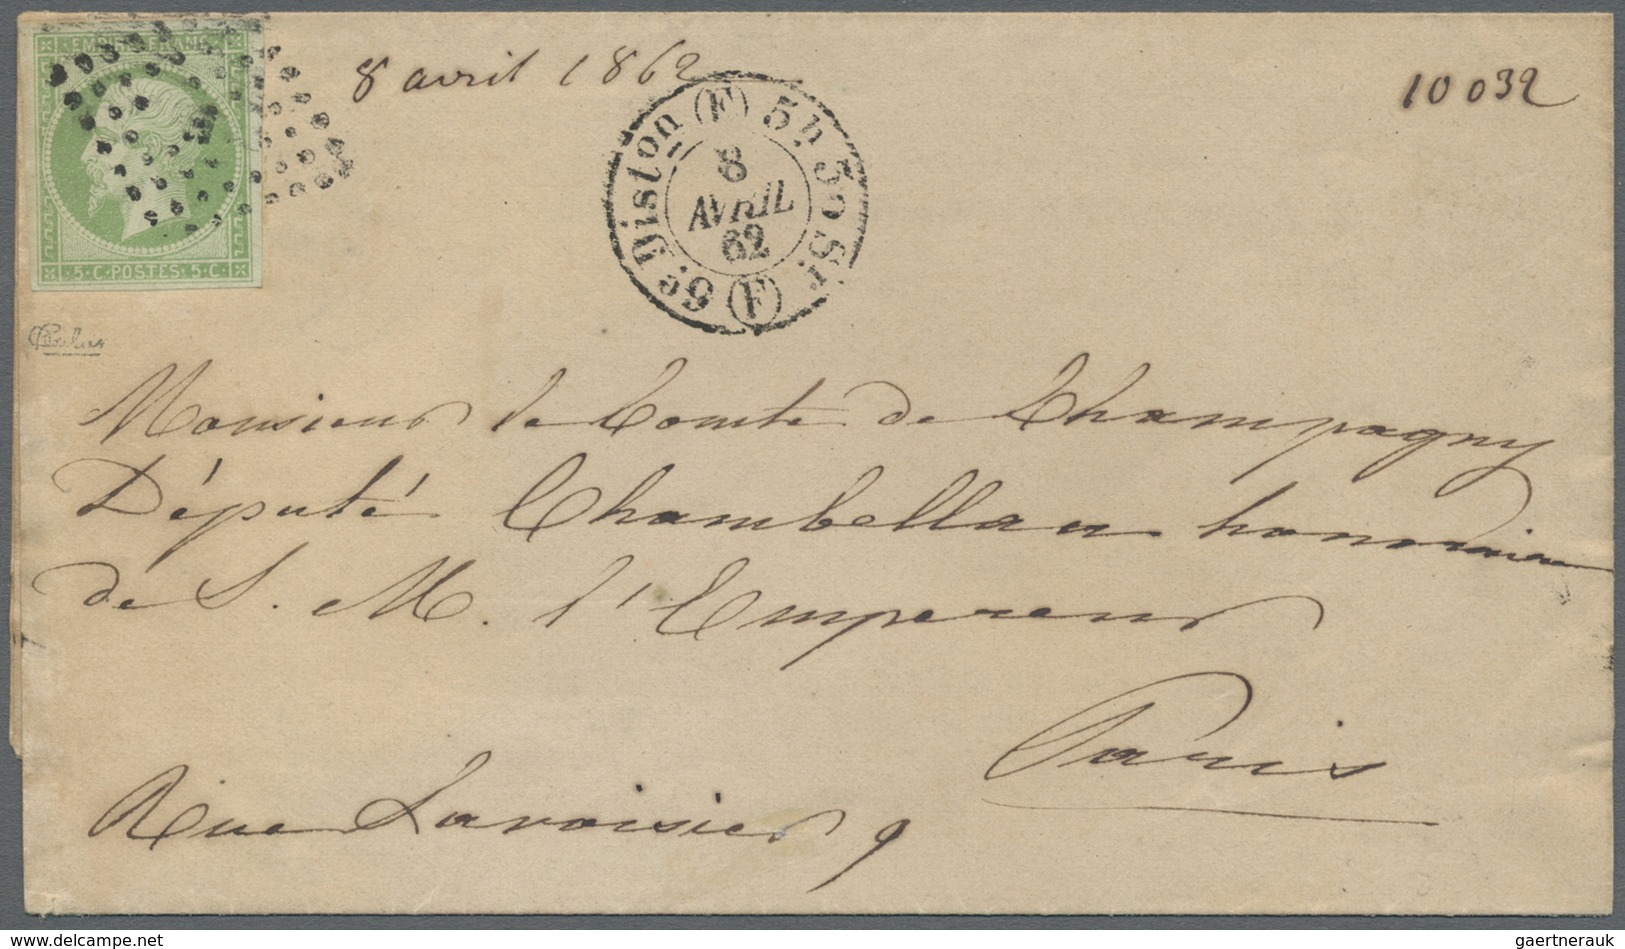 EMPIRE FRANC.
8 avril 1862
10 032
6e. Diston (F) 5h. 30 Sr. (F)
8
AVRIL
62
5 · C · POSTES · 5 · C ·
Monsieur le Comte de Champagny
Député Chambellan honoraire
de S. M. l'Empereur
Paris
Rue Lavoisier 9
delcampe.net
gaertnerauk